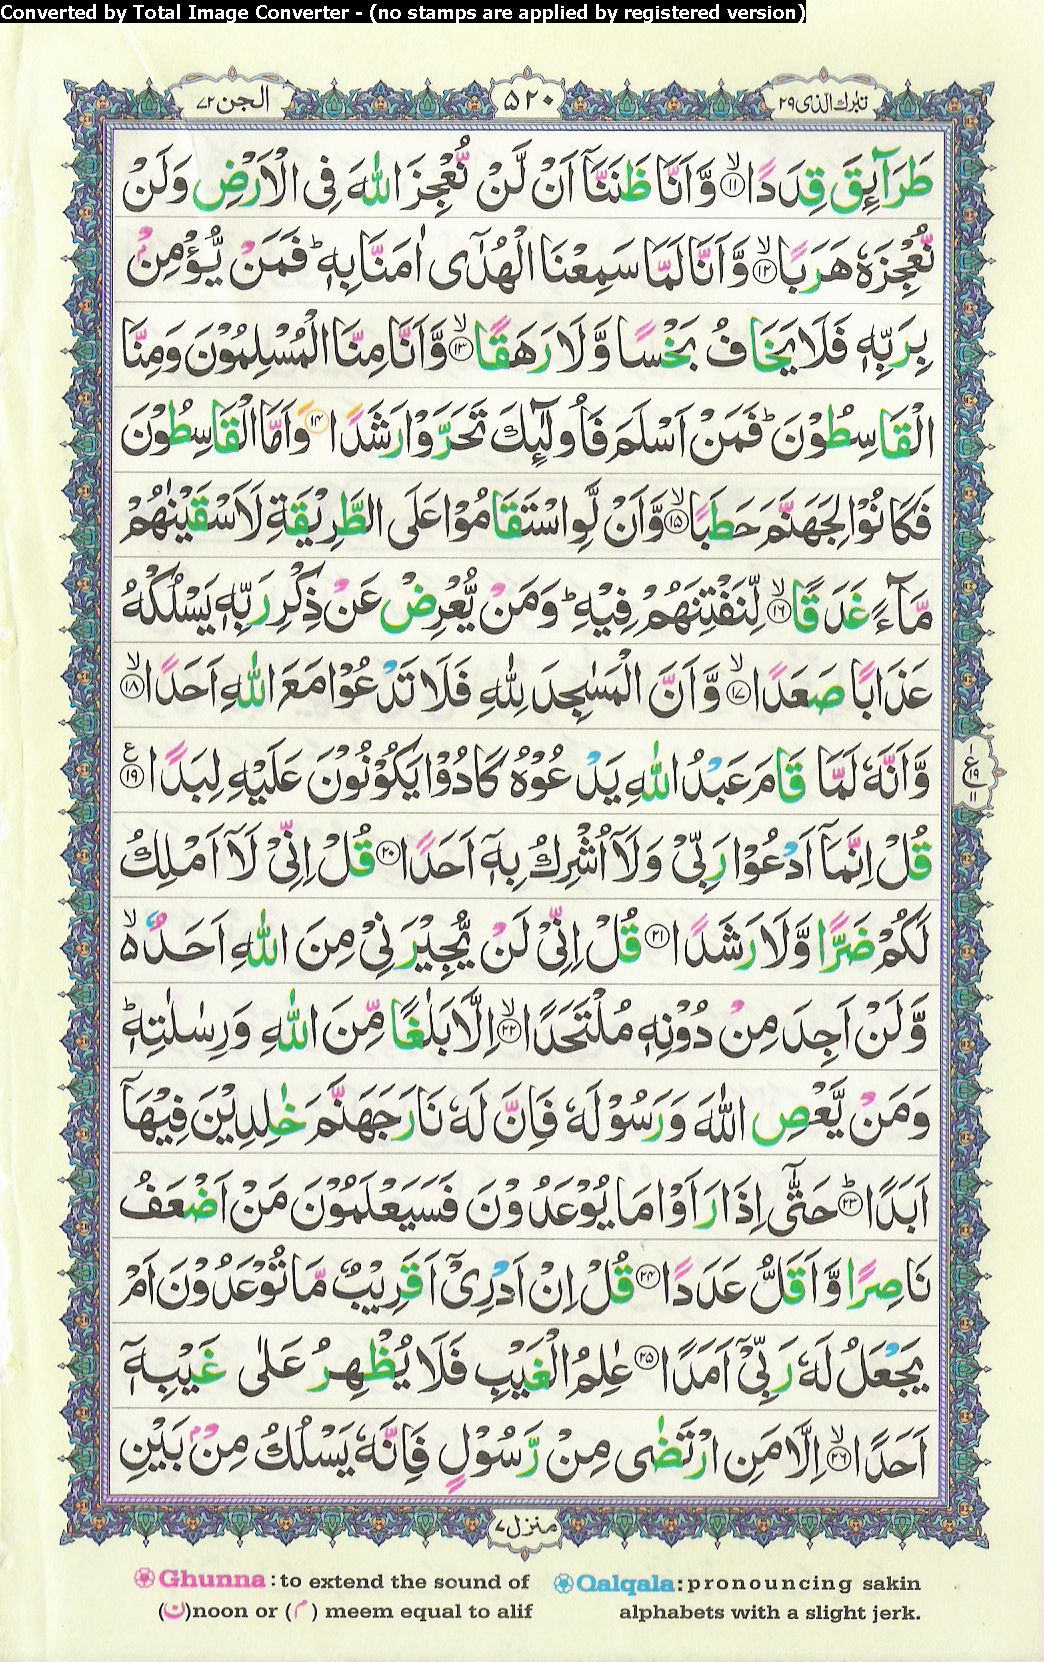 Converted by Total Image Converter - (no stamps are applied by registered version)
تبٰرك الذی ٢٩
٥٢٠
الجن ٧٢
طَرَآئِقَ قِدَدًاۙ‏ ﴿۱۱﴾ وَّاَنَّا ظَنَنَّاۤ اَنْ لَّنْ نُّعْجِزَ اللّٰهَ فِى الْاَرْضِ وَلَنْ
نُّعْجِزَهٗ هَرَبًاۙ‏ ﴿۱۲﴾ وَّاَنَّا لَمَّا سَمِعْنَا الْهُدٰٓى اٰمَنَّا بِهٖ‌ؕ فَمَنْ يُّؤْمِنْۢ
بِرَبِّهٖ فَلَا يَخَافُ بَخْسًا وَّلَا رَهَقًاۙ‏ ﴿۱۳﴾ وَّاَنَّا مِنَّا الْمُسْلِمُوْنَ وَمِنَّا
الْقَاسِطُوْنَ‌ؕ فَمَنْ اَسْلَمَ فَاُولٰٓٮِٕكَ تَحَرَّوْا رَشَدًا‏ ﴿۱۴﴾ وَاَمَّا الْقَاسِطُوْنَ
فَكَانُوْا لِجَهَنَّمَ حَطَبًاۙ‏ ﴿۱۵﴾ وَّاَنْ لَّوِ اسْتَقَامُوْا عَلَى الطَّرِيْقَةِ لَاَسْقَيْنٰهُمْ
مَّآءً غَدَقًاۙ‏ ﴿۱۶﴾ لِّنَفْتِنَهُمْ فِيْهِ‌ؕ وَمَنْ يُّعْرِضْ عَنْ ذِكْرِ رَبِّهٖ يَسْلُكْهُ
عَذَابًا صَعَدًاۙ‏ ﴿۱۷﴾ وَّاَنَّ الْمَسٰجِدَ لِلّٰهِ فَلَا تَدْعُوْا مَعَ اللّٰهِ اَحَدًاۙ‏ ﴿۱۸﴾
وَّاَنَّهٗ لَمَّا قَامَ عَبْدُ اللّٰهِ يَدْعُوْهُ كَادُوْا يَكُوْنُوْنَ عَلَيْهِ لِبَدًا ؕ ع ﴿۱۹﴾
ع ١٩ ١١
قُلْ اِنَّمَاۤ اَدْعُوْا رَبِّىْ وَلَاۤ اُشْرِكُ بِهٖۤ اَحَدًا‏ ﴿۲۰﴾ قُلْ اِنِّىْ لَاۤ اَمْلِكُ
لَكُمْ ضَرًّا وَّلَا رَشَدًا‏ ﴿۲۱﴾ قُلْ اِنِّىْ لَنْ يُّجِيْرَنِىْ مِنَ اللّٰهِ اَحَدٌ ۙ
وَّلَنْ اَجِدَ مِنْ دُوْنِهٖ مُلْتَحَدًاۙ‏ ﴿۲۲﴾ اِلَّا بَلٰغًا مِّنَ اللّٰهِ وَرِسٰلٰتِهٖ‌ؕ
وَمَنْ يَّعْصِ اللّٰهَ وَرَسُوْلَهٗ فَاِنَّ لَهٗ نَارَ جَهَنَّمَ خٰلِدِيْنَ فِيْهَاۤ
اَبَدًاؕ‏ ﴿۲۳﴾ حَتّٰٓى اِذَا رَاَوْا مَا يُوْعَدُوْنَ فَسَيَعْلَمُوْنَ مَنْ اَضْعَفُ
نَاصِرًا وَّاَقَلُّ عَدَدًا‏ ﴿۲۴﴾ قُلْ اِنْ اَدْرِىْۤ اَقَرِيْبٌ مَّا تُوْعَدُوْنَ اَمْ
يَجْعَلُ لَهٗ رَبِّىْۤ اَمَدًا‏ ﴿۲۵﴾ عٰلِمُ الْغَيْبِ فَلَا يُظْهِرُ عَلٰى غَيْبِهٖۤ
اَحَدًاۙ‏ ﴿۲۶﴾ اِلَّا مَنِ ارْتَضٰى مِنْ رَّسُوْلٍ فَاِنَّهٗ يَسْلُكُ مِنْۢ بَيْنِ
منزل ٧
Ghunna : to extend the sound of
(ن) noon or (م) meem equal to alif
Qalqala: pronouncing sakin
alphabets with a slight jerk.